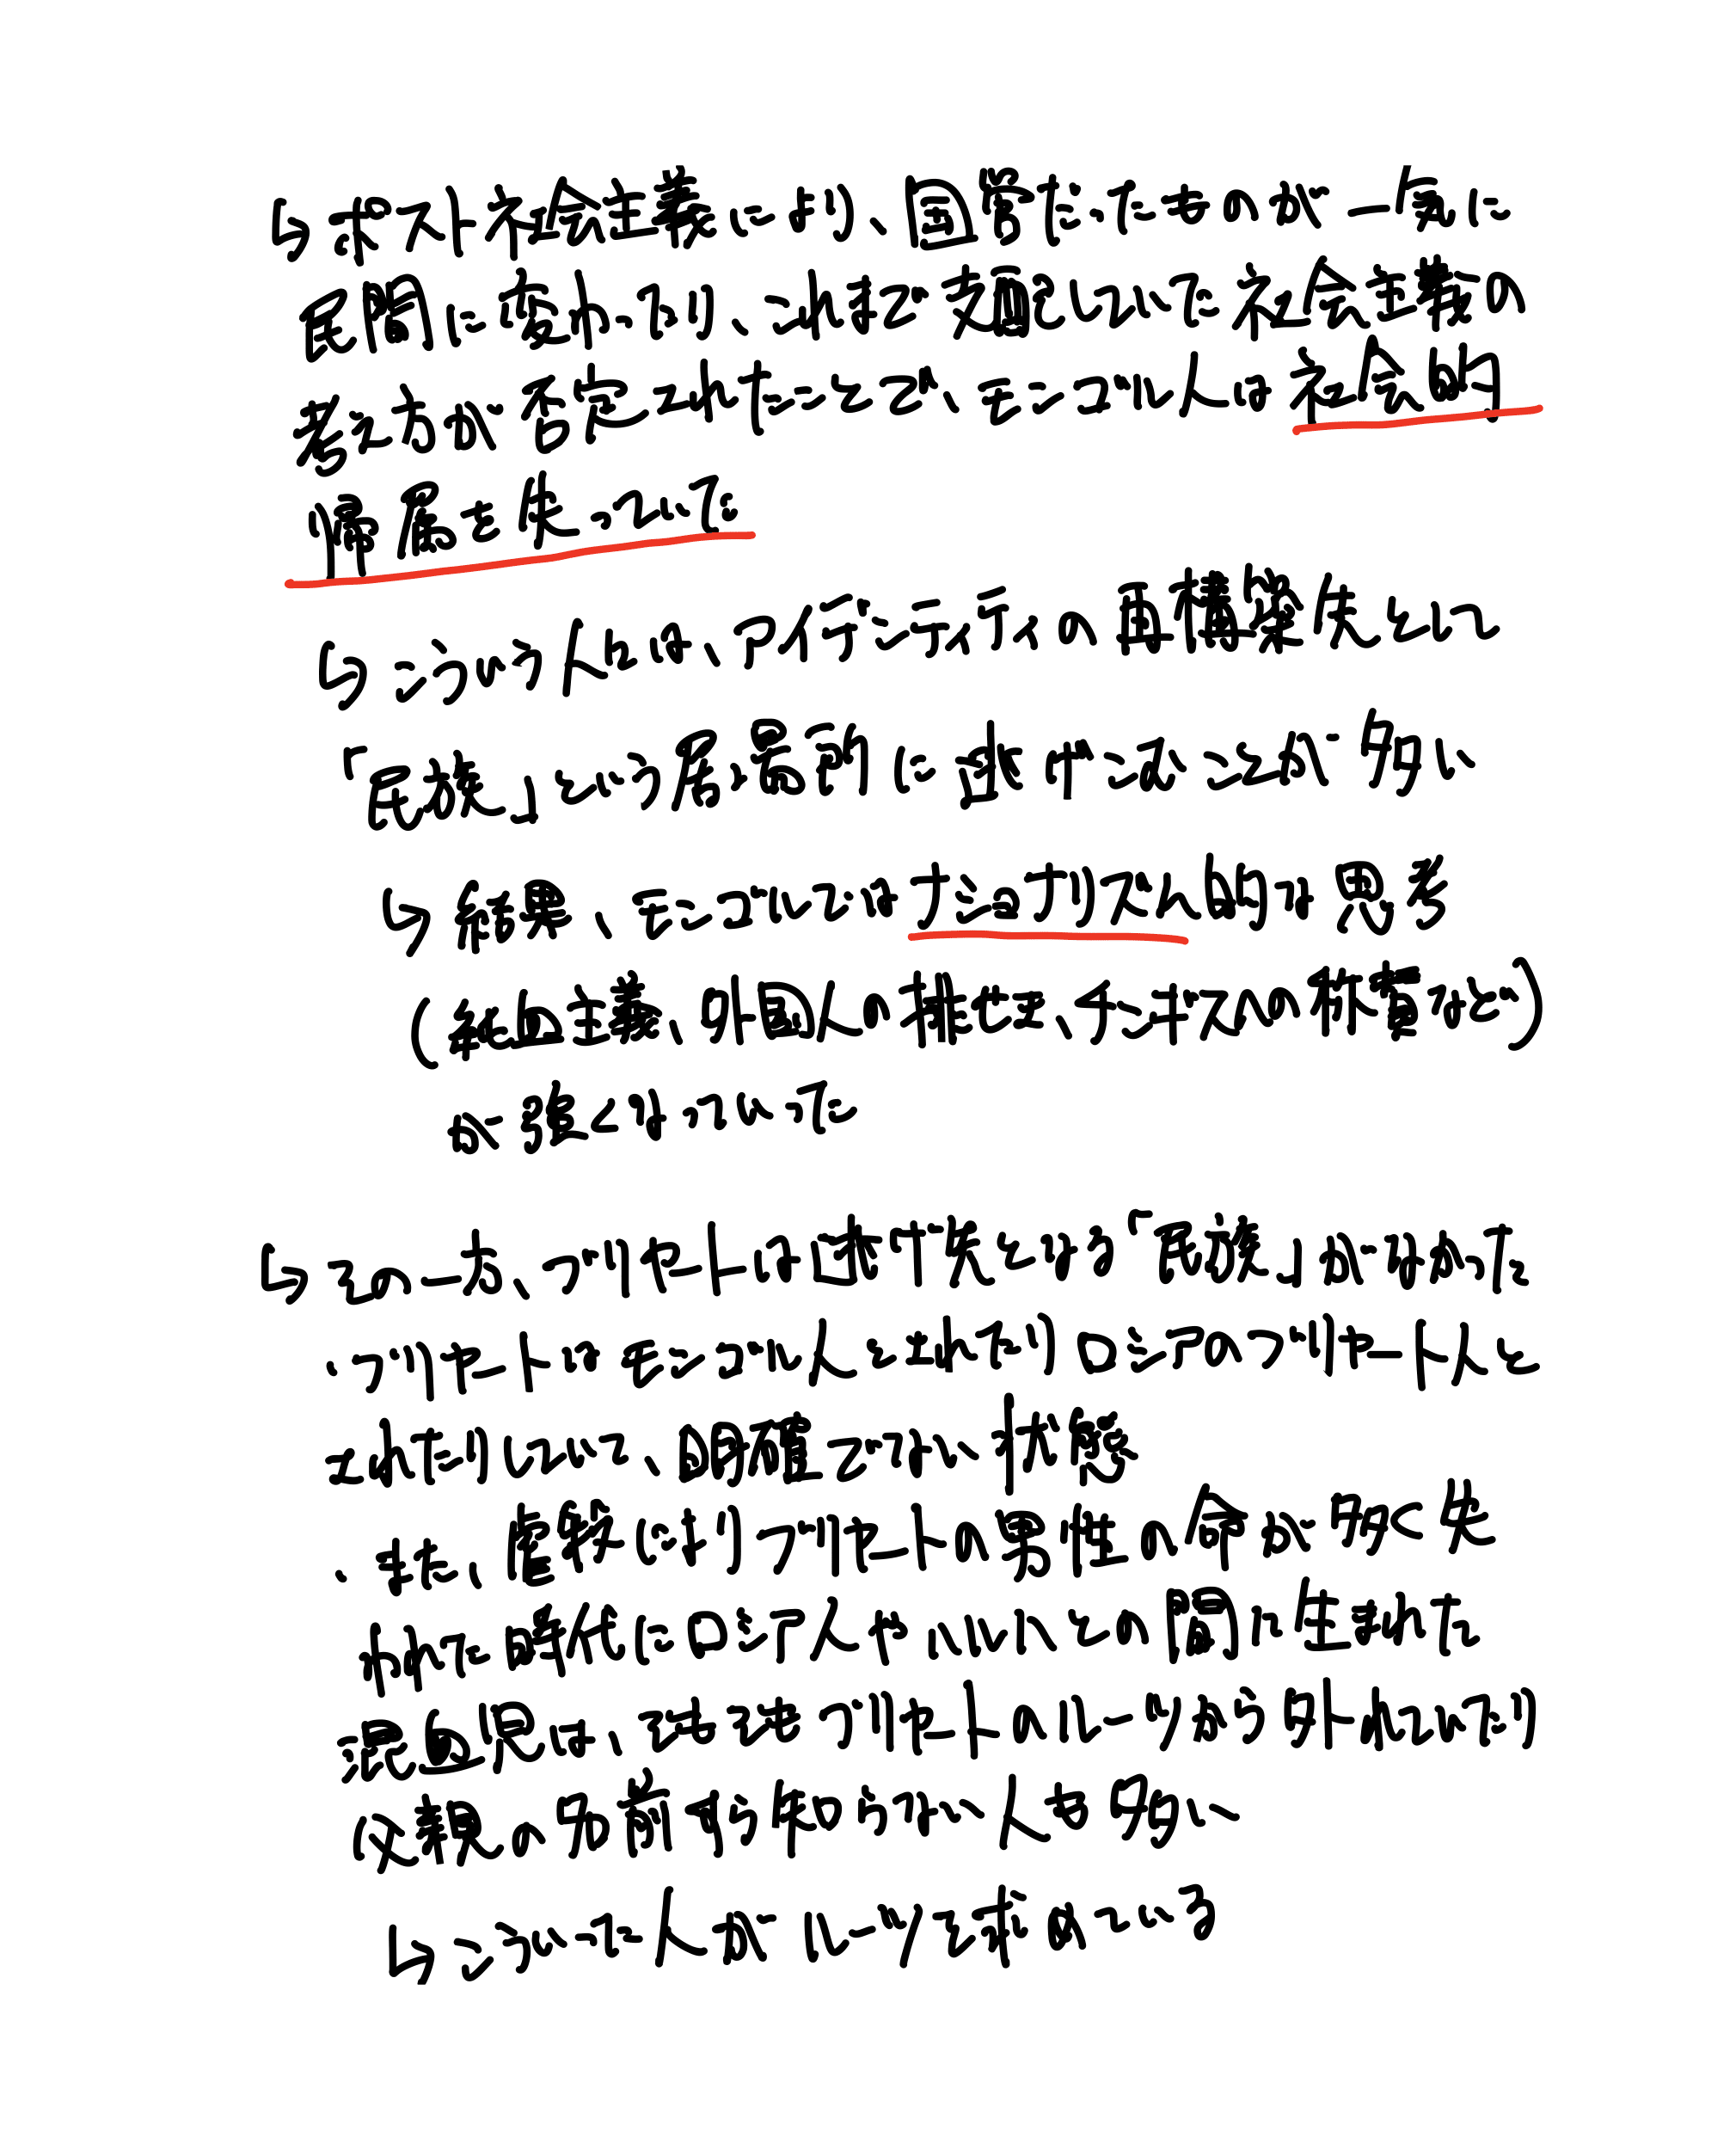 ↳ポスト社会主義により、国営だったものが一気に
民間に変わったり、これまで支配していた社会主義の
考え方が否定されたことで、モンゴル人は社会的
帰属を失っていた
↳こういう人々は、アイデンティティの再構築先として
「民族」という居場所に逃げこむことが多い
↳結果、モンゴルではナショナリズム的な思考
(純血主義、外国人の排せき、チンギスへの称賛など)
が強くなっていった
↳その一方、ブリヤートは逃げ先となる「民族」がなかった
・ブリヤートはモンゴル人とされたりロシアのブリヤート人と
されたりしていて、明確でない状態
・また、虐殺によりブリヤートの男性の命が多く失
われた時代にロシア人やハルハとの間に生まれた
混血児は、そもそもブリヤートのルーツから外れていたり
父親の名前すら知らない人も多い
↳こういった人がルーツを求めている